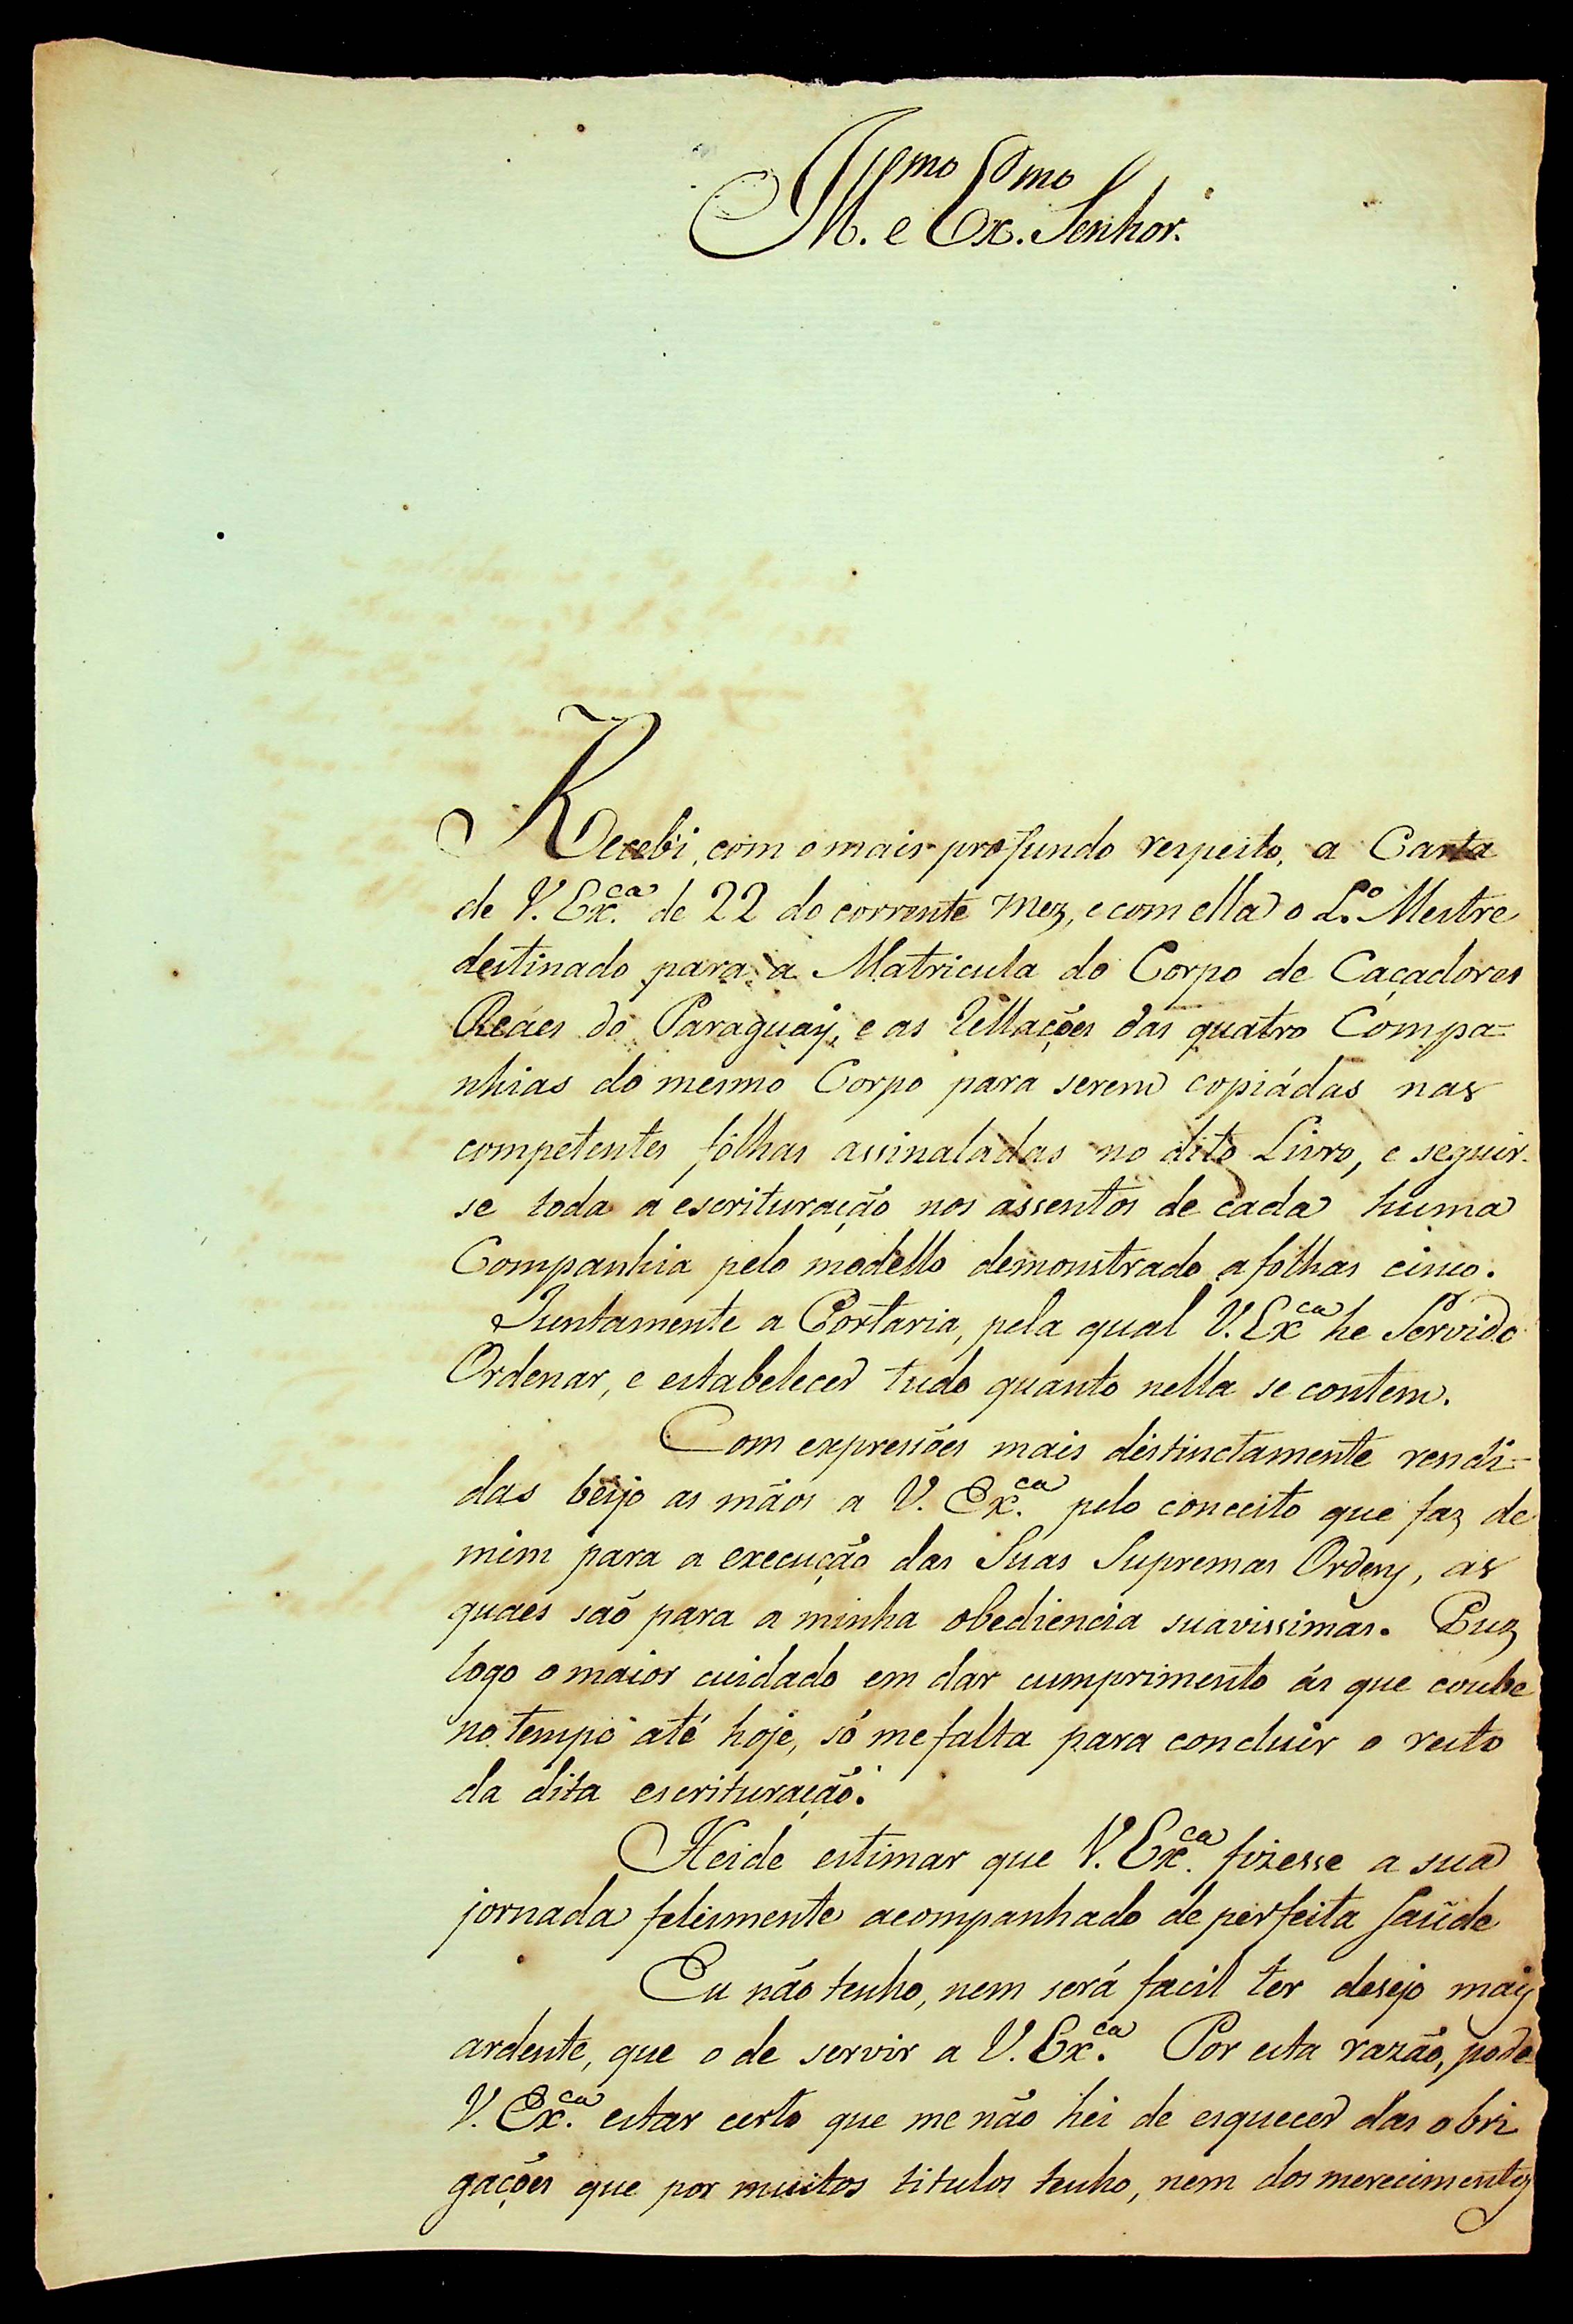 Ill.mo e Ex.mo Senhor.
Recebi, com o mais profundo respeito, a Carta
de V. Ex.ca de 22 do corrente Mez, e com ella o L.o Mestre
destinado para a Matricula do Corpo de Caçadores
Reáes do Paraguaÿ, e as Rellações das quatro Compa=
nhias do mesmo Corpo para serem copiádas nas
competentes folhas assinaladas no dito Livro, e seguir-
se toda a escrituração nos assentos de cada huma
Companhia pelo modello demonstrado a folhas cinco.
Juntamente a Portaria, pela qual V. Ex.ca he Servido
Ordenar, e estabelecer tudo quanto nella se contem.
Com expressões mais distinctamente rendi-
das beijo as mãos a V. Ex.ca pelo conceito que faz de
mim para a execução das Suas Supremas Ordens, as
quaes saõ para a minha obediencia suavissimas. Puz
logo o maior cuidado em dar cumprimento ás que coube
no tempo até hoje, só me falta para concluir o resto
da dita escrituração.
Heide estimar que V. Ex.ca fizesse a sua
jornada felismente acompanhado de perfeita Saúde
Eu não tenho, nem será facil ter desejo mais
ardente, que o de servir a V. Ex.ca Por esta razão, pode
V. Ex.ca estar certo que me não hei de esquecer das obri
gações que por muitos titulos tenho, nem dos merecimentos